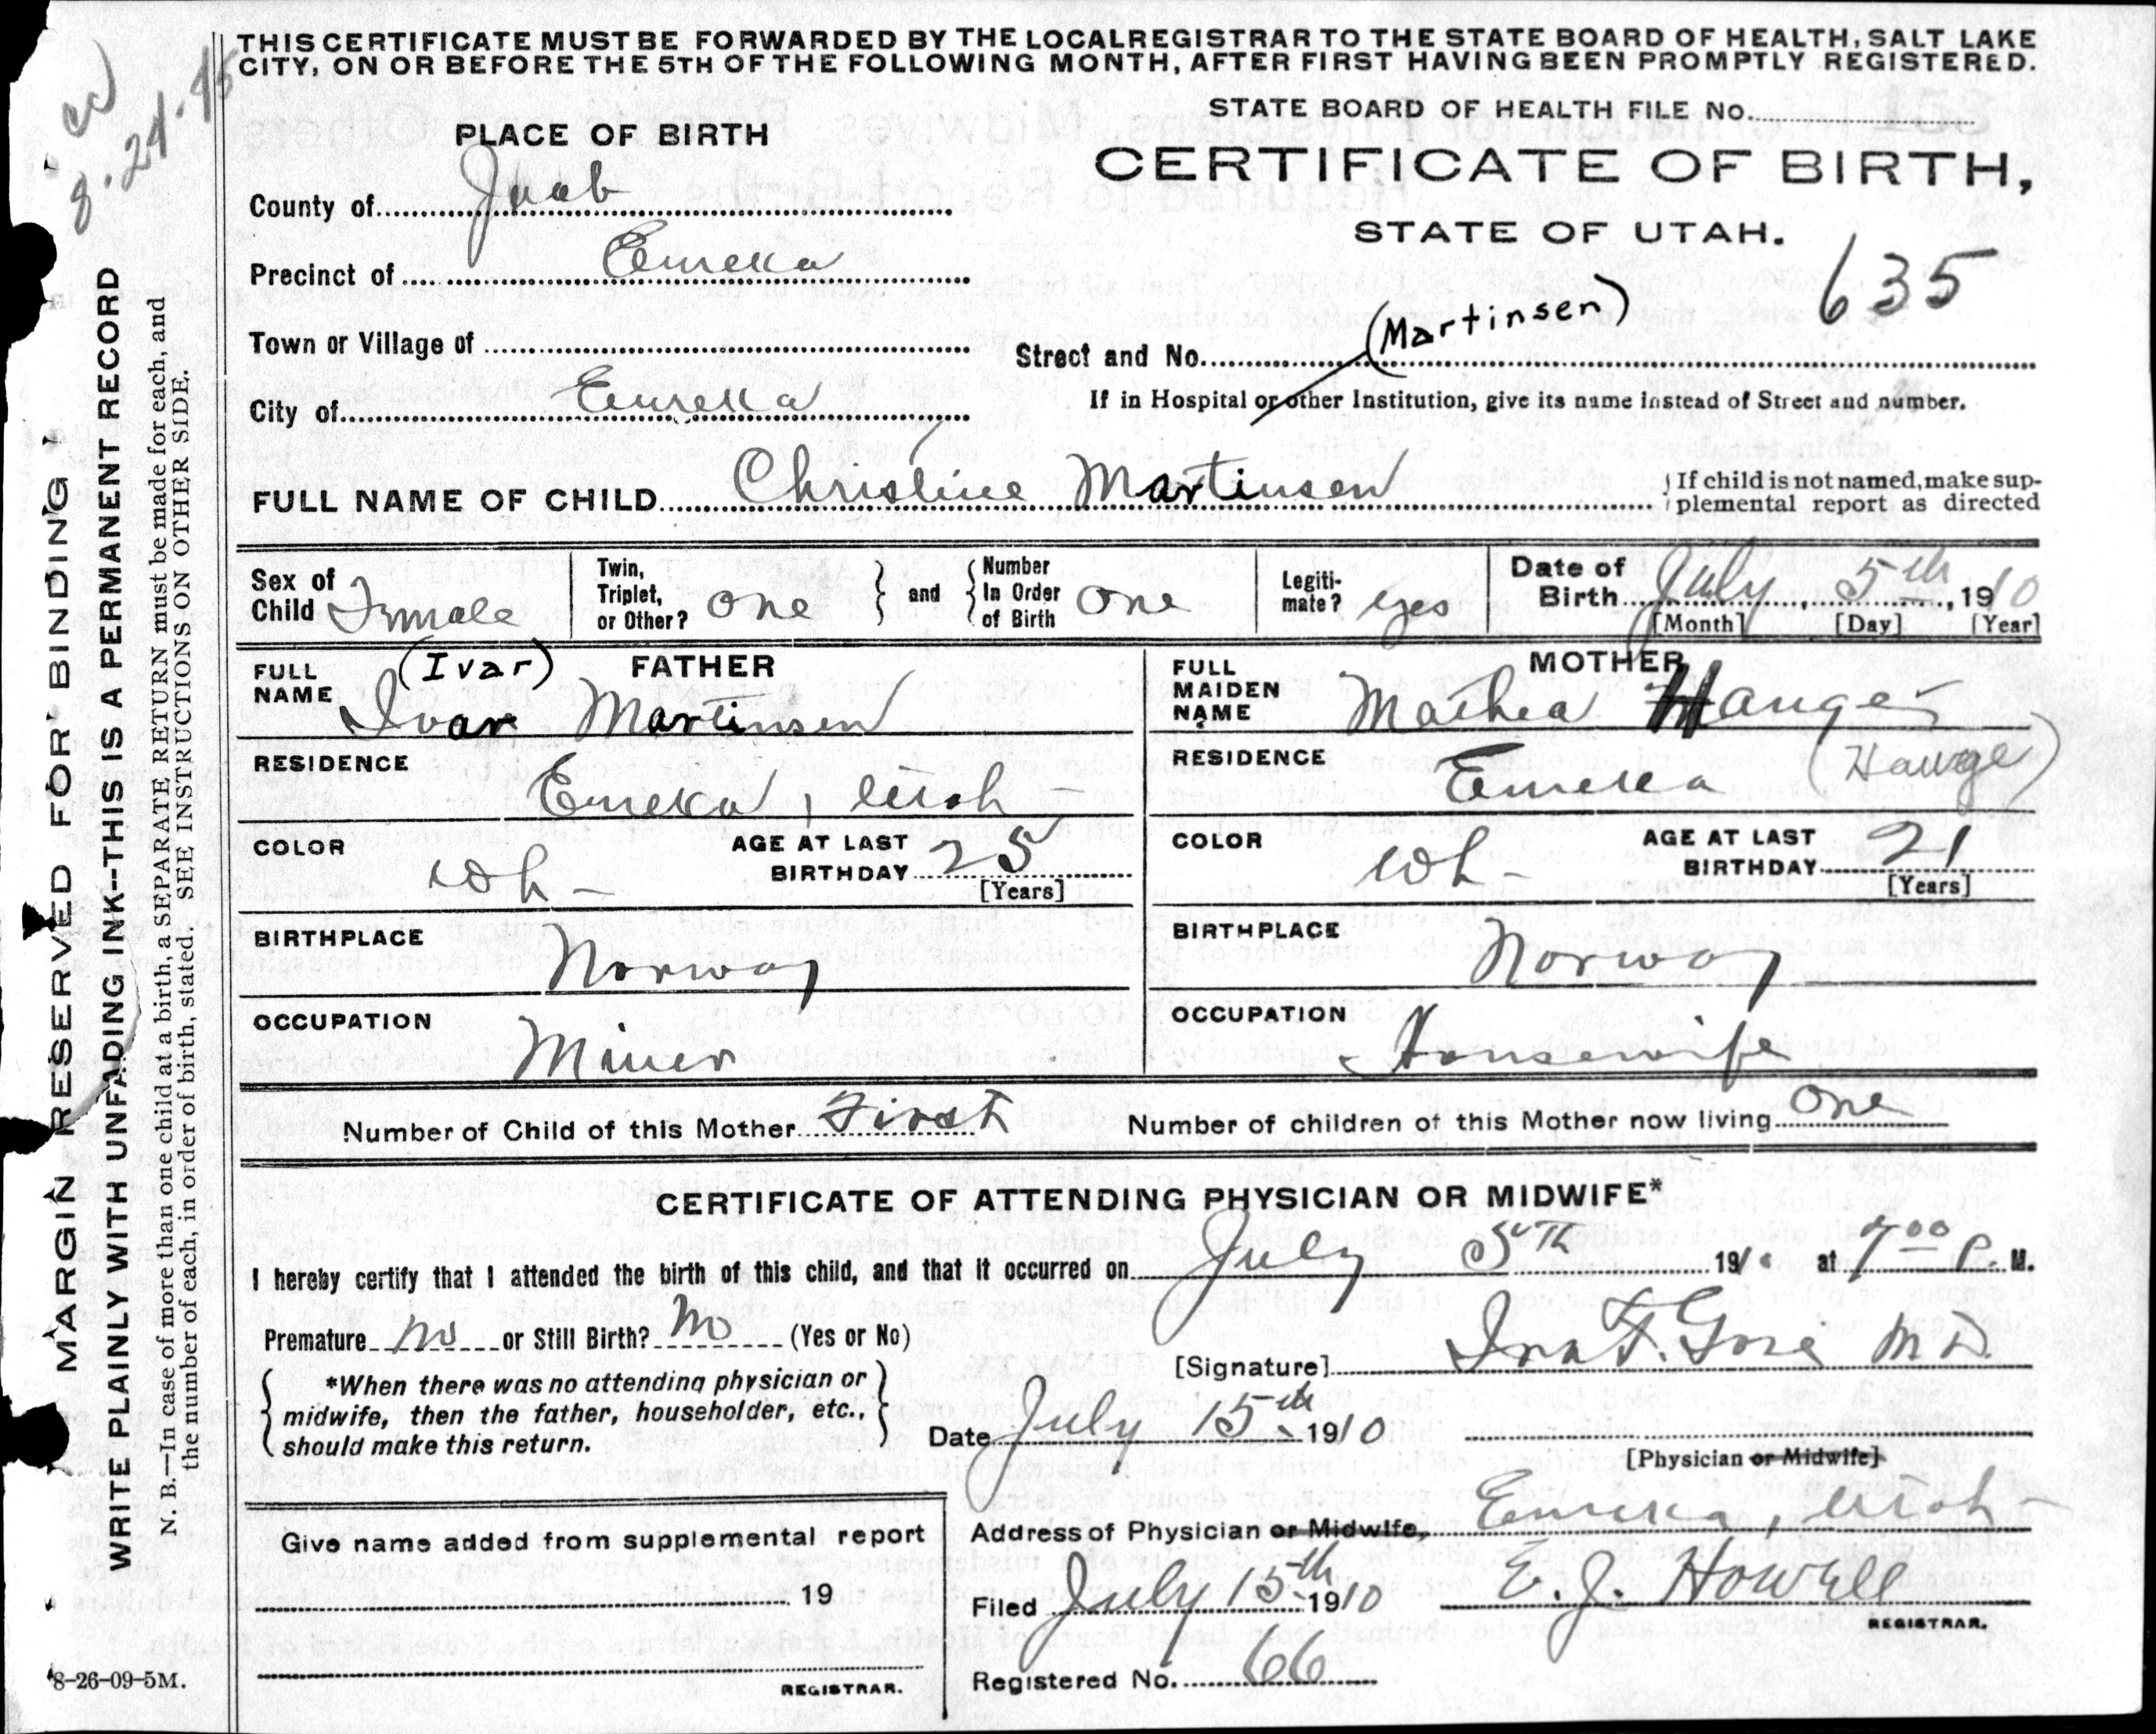 THIS CERTIFICATE MUST BE FORWARDED BY THE LOCAL REGISTRAR TO THE STATE BOARD OF HEALTH, SALT LAKE
CITY, ON OR BEFORE THE 5TH OF THE FOLLOWING MONTH, AFTER FIRST HAVING BEEN PROMPTLY REGISTERED.
8-24-45
MARGIN RESERVED FOR BINDING
WRITE PLAINLY WITH UNFADING INK--THIS IS A PERMANENT RECORD
N. B.—In case of more than one child at a birth, a SEPARATE RETURN must be made for each, and
the number of each, in order of birth, stated. SEE INSTRUCTIONS ON OTHER SIDE.
STATE BOARD OF HEALTH FILE No.
PLACE OF BIRTH
CERTIFICATE OF BIRTH,
STATE OF UTAH.
County of Juab
Precinct of Eureka
635
Town or Village of
Street and No. (Martinsen)
City of Eureka
If in Hospital or other Institution, give its name instead of Street and number.
FULL NAME OF CHILD Christine Martinsen
If child is not named, make sup-
plemental report as directed
Sex of Child Female
Twin, Triplet, or Other? One
and
Number In Order of Birth One
Legiti-mate? yes
Date of Birth July 5th, 1910
[Month] [Day] [Year]
FATHER
FULL NAME (Ivar) Ivar Martinsen
RESIDENCE Eureka, Utah
COLOR Wh-
AGE AT LAST BIRTHDAY 25
[Years]
BIRTHPLACE Norway
OCCUPATION Miner
MOTHER
FULL MAIDEN NAME Mathea Hauge
RESIDENCE Eureka (Hauge)
COLOR Wh-
AGE AT LAST BIRTHDAY 21
[Years]
BIRTHPLACE Norway
OCCUPATION Housewife
Number of Child of this Mother First
Number of children of this Mother now living One
CERTIFICATE OF ATTENDING PHYSICIAN OR MIDWIFE*
I hereby certify that I attended the birth of this child, and that it occurred on July 5th 1910 at 7 00 P. M.
Premature no or Still Birth? No (Yes or No)
[Signature] Ira F. M D.
*When there was no attending physician or
midwife, then the father, householder, etc.,
should make this return.
Date July 15th 1910
[Physician or Midwife]
Address of Physician or Midwife, Eureka, Utah
Give name added from supplemental report
19
REGISTRAR.
Filed July 15th 1910 E. J. Howell
REGISTRAR.
Registered No. 66
8-26-09-5M.